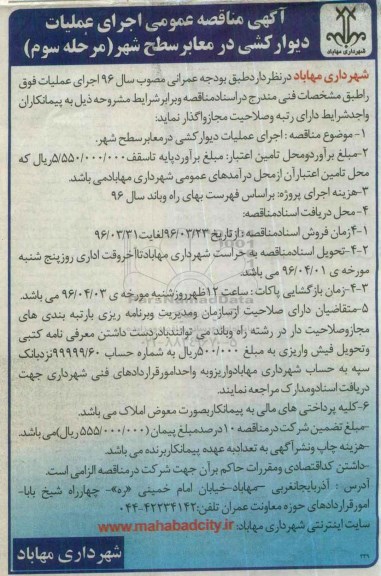 آگهی مناقصه عمومی اجرای عملیات
دیوارکشی در معابر سطح شهر (مرحله سوم)
شهرداری مهاباد
شهرداری مهاباد درنظر دارد طبق بودجه عمرانی مصوب سال ۹۶ اجرای عملیات فوق
را طبق مشخصات فنی مندرج در اسناد مناقصه و برابر شرایط مشروحه ذیل به پیمانکاران
واجد شرایط دارای رتبه وصلاحیت مجاز واگذار نماید:
۱-موضوع مناقصه : اجرای عملیات دیوارکشی در معابر سطح شهر.
۲-مبلغ برآورد ومحل تامین اعتبار: مبلغ برآورد پایه تاسقف ۵/۵۵۰/۰۰۰/۰۰۰ریال که
محل تامین اعتبارآن از محل درآمدهای عمومی شهرداری مهابادمی باشد.
۳-هزینه اجرای پروژه: براساس فهرست بهای راه وباند سال ۹۶
۴-محل دریافت اسناد مناقصه:
۴-۱زمان فروش اسناد مناقصه : از تاریخ ۹۶/۰۳/۲۳ لغایت ۹۶/۰۳/۳۱
۴-۲-تحویل اسناد مناقصه به حراست شهرداری مهاباد تا آخر وقت اداری روز پنج شنبه
مورخه ی ۹۶/۰۴/۰۱ می باشد.
۴-۳-زمان بازگشایی پاکات : ساعت ۱۲ظهرروزشنبه مورخه ی ۹۶/۰۴/۰۳ می باشد.
۵-متقاضیان دارای صلاحیت از سازمان ومدیریت وبرنامه ریزی بارتبه بندی های
مجاز وصلاحیت دار در رشته راه وباند می توانند با در دست داشتن معرفی نامه کتبی
وتحویل فیش واریزی به مبلغ ۵۰۰/۰۰۰ریال به شماره حساب ۹۹۹۹۹/۶۰ نزد بانک
سپه به حساب شهرداری مهاباد واریزوبه واحدامورقراردادهای فنی شهرداری جهت
دریافت اسناد ومدارک مراجعه نمایند.
۶-کلیه پرداختی های مالی به پیمانکار بصورت معوض املاک می باشد.
-مبلغ تضمین شرکت در مناقصه ۱۰درصدمبلغ پیمان (۵۵۵/۰۰۰/۰۰۰ ریال)می باشد.
-هزینه چاپ ونشر آگهی به تعداد به عهده پیمانکاربرنده می باشد.
-داشتن کد اقتصادی ومقررات حاکم برآن جهت شرکت در مناقصه الزامی است.
آدرس : آذربایجانغربی –مهاباد-خیابان امام خمینی «ره»- چهارراه شیخ بابا-
امورقراردادهای حوزه معاونت عمران تلفن:۴۲۲۳۴۱۴۲-۰۴۴
سایت اینترنتی شهرداری مهاباد: www.mahabadcity.ir
شهرداری مهاباد